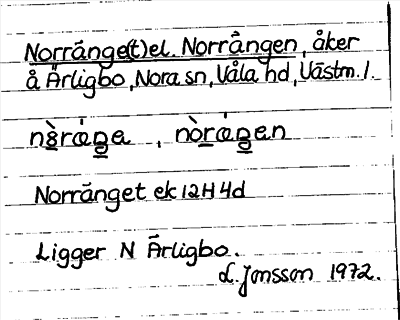 Norränge(t) el. Norrängen, åker
å Ärligbo, Nora sn, Våla hd, Västm. l.
nòrán̲a , nòrán̲en
Norränget ek 12H 4d
Ligger N Ärligbo.
L. Jonsson 1972.